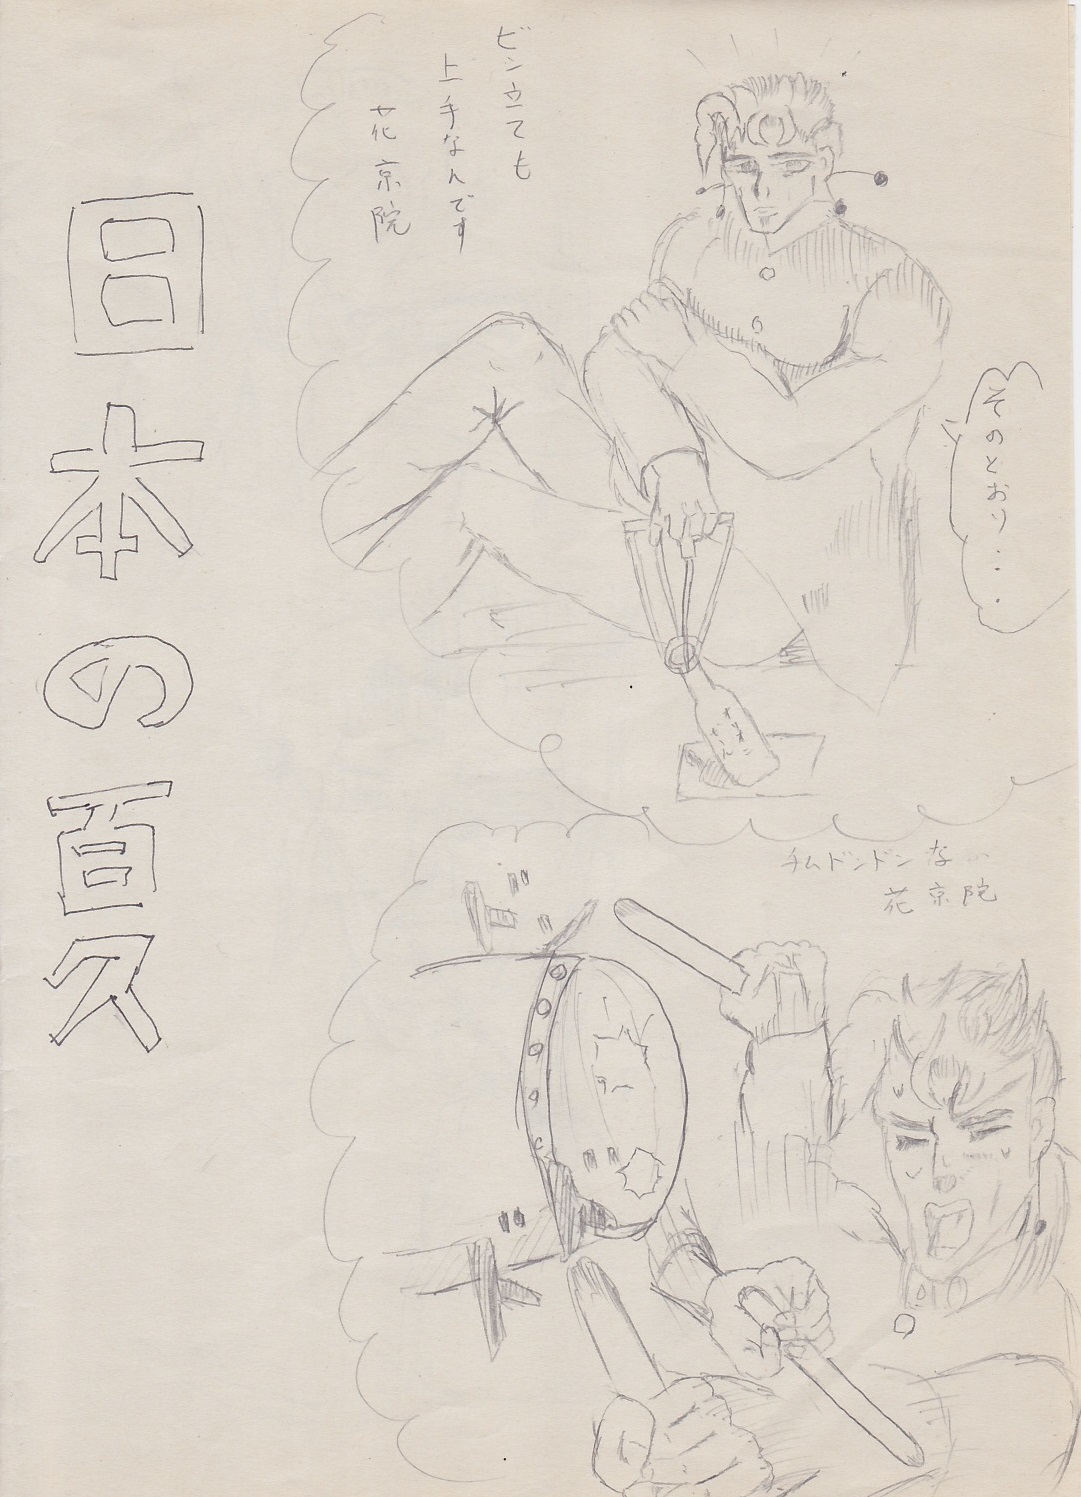 ビン立ても
上手なんです
花京院
そのとおり・・・
日本の夏
チムドンドンな…
花京院